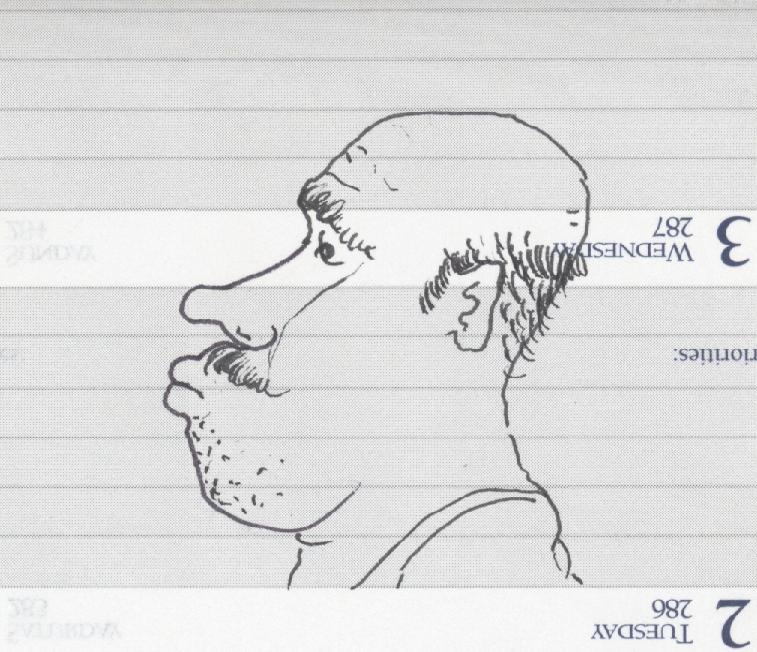 2 TUESDAY
286
SATURDAY
283
riorities:
3 WEDNESDAY
287
SUNDAY
284